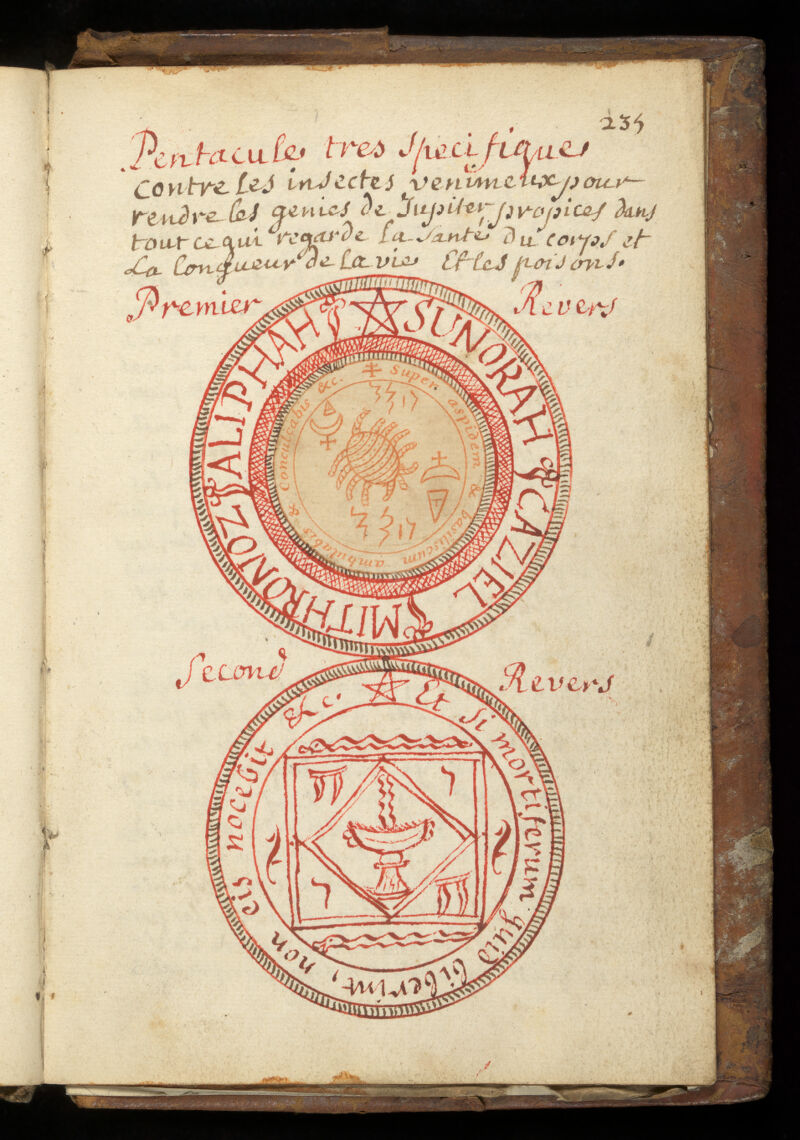 235
Pentacule tres specifique
contre les insectes venimeux pour
rendre les genies de Jupiter propices dans
tout ce qui regarde la santé du corps et
La longueur de la vie Et les poisons.
Premier Revers
SUNORAH CAZIEL MITHRONOZ ALIPHAH
Super aspidem & basiliscum ambulabis & conculcabis &c.
Second Revers
Et si mortiferum quid biberint, non eis nocebit &c.